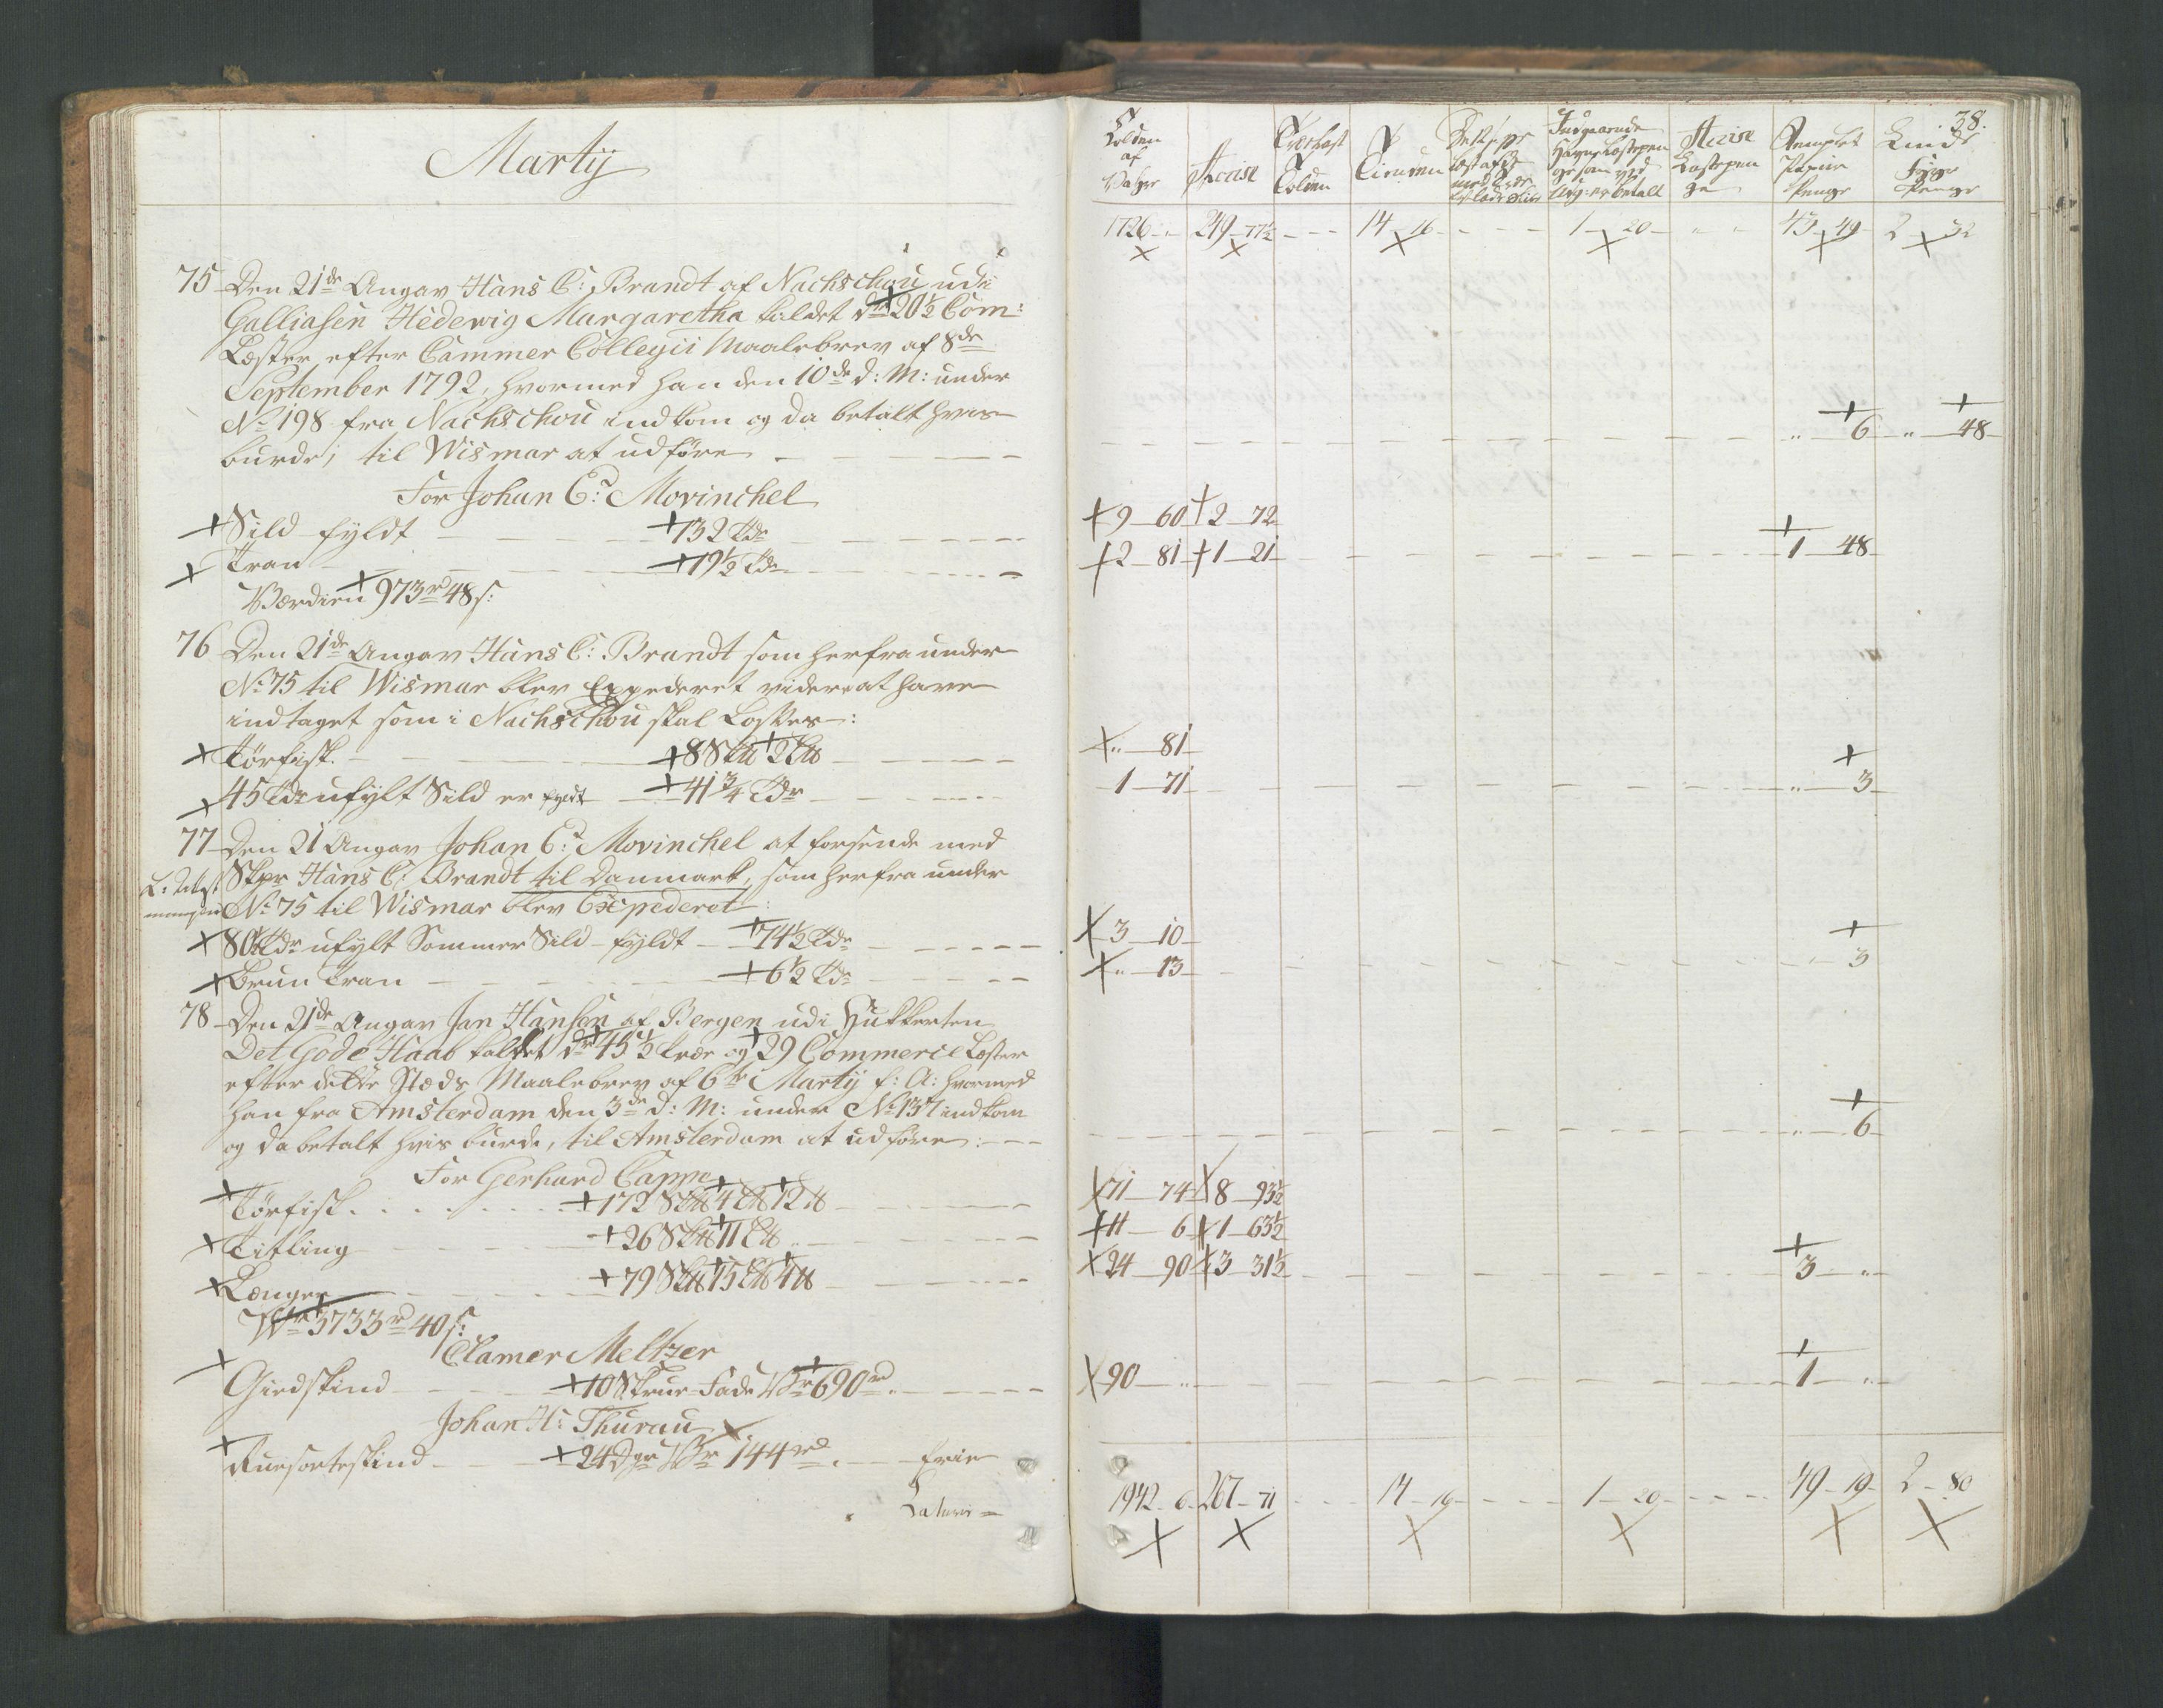 Martij
75 Den 21de Angav Hans C: Brandt af Nachschou udi
Galliasen Hedewig Margaretha kaldet dr: 20½ Com:
Læster efter Cammer Collegii Maalebrev af 8de
September 1792, hvormed han den 10de d: M: under
No 198 fra Nachschou indkom og da betalt hvis
burde; til Wismar at udføre
For Johan C: Movinchel
Sild fyldt 132 Tdr
Tran 19½ Tdr
Værdien 973 rd 48 s:
76 Den 21de Angav Hans C: Brandt som herfra under
No 75 til Wismar blev Expederet videre at have
indtaget som i Nachschou skal Losses:
Tørfisk 8 Sk℔ 2 L℔
45 Tdr ufylt Sild er fyldt 41¾ Tdr
77 Den 21 Angav Johan C: Movinchel at forsende med
Skpr Hans C: Brandt til Danmark, som herfra under
No 75 til Wismar blev Expederet:
80 Tdr ufylt Sommer Sild fyldt 74½ Tdr
Bruun Tran 6½ Tdr
78 Den 21de Angav Jan Hansen af Bergen udi Hukkerten
Det Gode Haab kaldet dr: 45½ Træe og 29 Commerce Læster
efter dette Stæds Maalebrev af 6te Martij f: A: hvormed
han fra Amsterdam den 3de d: M: under No 137 indkom
og da betalt hvis burde, til Amsterdam at udføre:
For Gerhard Cappe
Tørfisk 172 Sk℔ 4 L℔ 12 ℔
Titling 26 Sk℔ 11 L℔
Længer 79 Sk℔ 15 L℔ 4 ℔
Wr 3733 rd 40 s:
Clamer Meltzer
Giedskind 10 Skrue Fade Wr 690 rd
Johan H: Thurau
Ruesorteskind 24 Dgr Wr 144 rd frie
Latus
38.
Tolden af Vahre
Accise
Tolden
Indgaaende
Accise Lastepenge
Stemplet Papiir Penge
Penge
1726 " 249 77½ 14 16 1 20 " " 43 49 2 32
" 6 " 48
9 60 2 72
2 81 1 21 1 48
" 81
1 71 " 3
3 10
" 13 " 3
" 6
71 74 8 93½
11 6 1 63½
24 90 3 31½ 3 "
90 " 1 "
1942 6 267 71 14 16 1 20 49 19 2 80